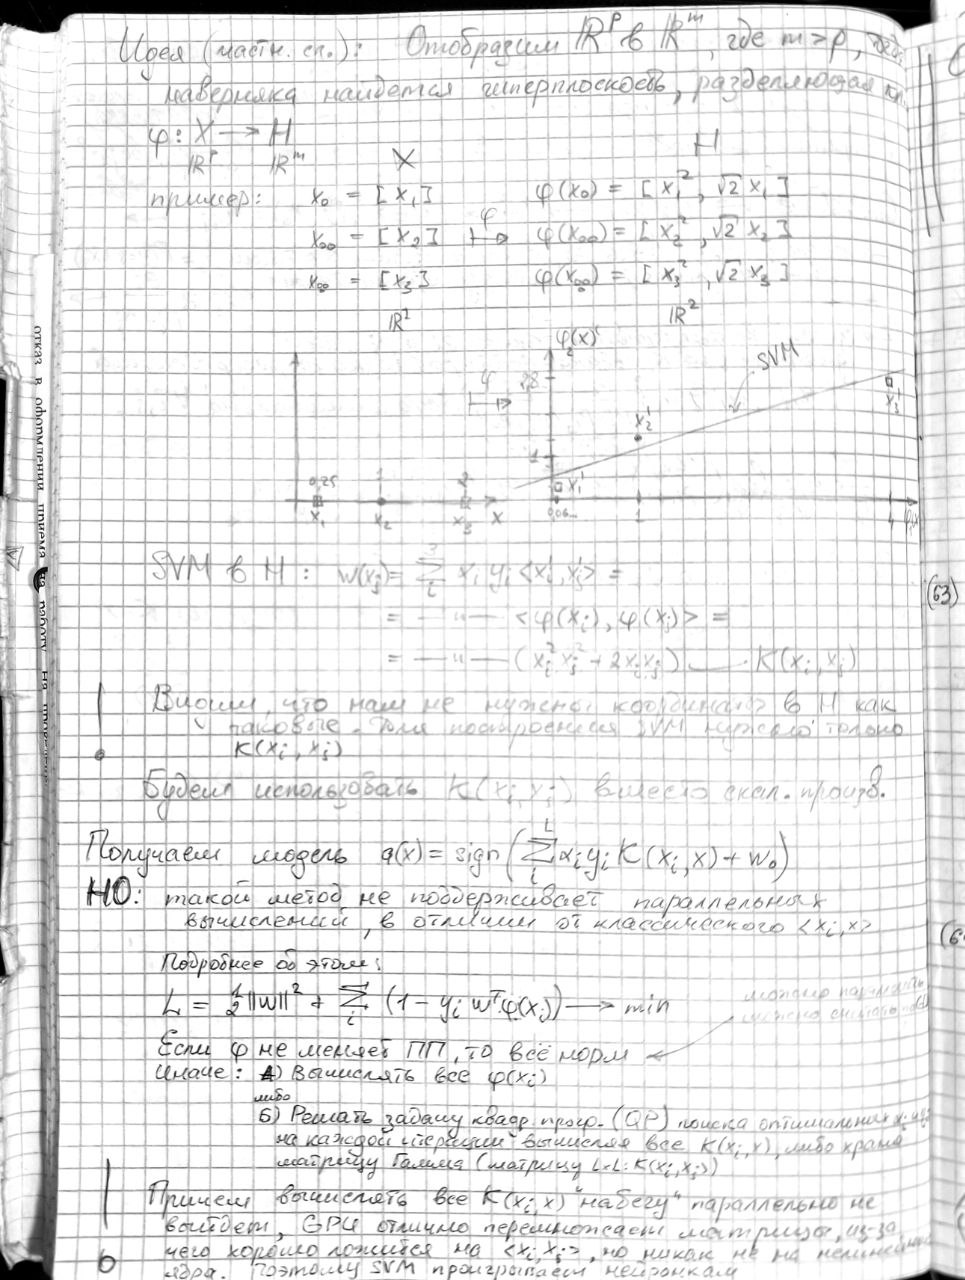 Идея (частн. сл.): Отобразим ℝᵖ в ℝᵐ, где m > p, тогда
наверняка найдется гиперплоскость, разделяющая кл.
φ: X → H
ℝᵖ ℝᵐ
X H
пример: x₀ = [x₁] φ(x₀) = [x₁², √2 x₁]
x₀₀ = [x₂] ↦ φ φ(x₀₀) = [x₂², √2 x₂]
x₀₀ = [x₃] φ(x₀₀) = [x₃², √2 x₃]
ℝ² ℝ²
φ₂(x)
SVM
φ 2,8
x₃'
x₂'
1
0,25 1 2 x₁'
x₁ x₂ x₃ x 0,06... 1 4
SVM в H: w(xⱼ) = Σ xᵢ yᵢ <xᵢ', xⱼ'> =
= —"— <φ(xᵢ), φ(xⱼ)> =
= —"— (xᵢ² xⱼ² + 2xᵢxⱼ) — K(xᵢ, xⱼ)
(63)
Видим, что нам не нужны координаты в H как
таковые. Для построения SVM нужно только
K(xᵢ, xⱼ)
Будем использовать K(xᵢ, xⱼ) вместо скал. произв.
Получаем модель a(x) = sign(Σ αᵢ yᵢ K(xᵢ, x) + w₀)
НО: такой метод не поддерживает параллельных
вычислений, в отличии от классического <xᵢ, x>
Подробнее об этом:
L = ½ ||w||² + Σ (1 − yᵢ wᵀφ(xᵢ)) → min
можно
Если φ не меняет ПП, то всё норм ←
Иначе: А) Вычислять все φ(xᵢ)
либо
Б) Решать задачу квадр. прогр. (QP) поиска оптимальных
на каждой итерации вычисляя все K(xᵢ, x), либо храня
матрицу Грамма (матрицу L×L: K(xᵢ, xⱼ))
Причем вычислять все K(xᵢ, x) "на бегу" параллельно не
выйдет, GPU отлично перемножает матрицы, из-за
чего хорошо ложится на <xᵢ, xⱼ>, но никак не на нелинейные
ядра. Поэтому SVM проигрывает нейронкам
отказ в оформлении приема на работу на